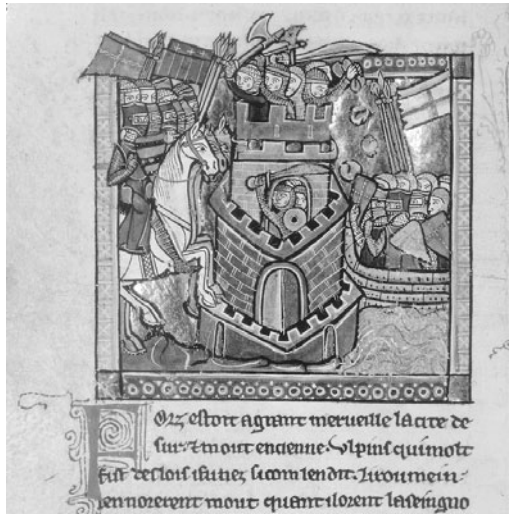 Forz estoit a grant merveille la cite de
sur. Et mout encienne. Ulpins qui molt
fist des lois i fu nez si com len dit. Li roumein
lennorerent mout quant il orent la seingno